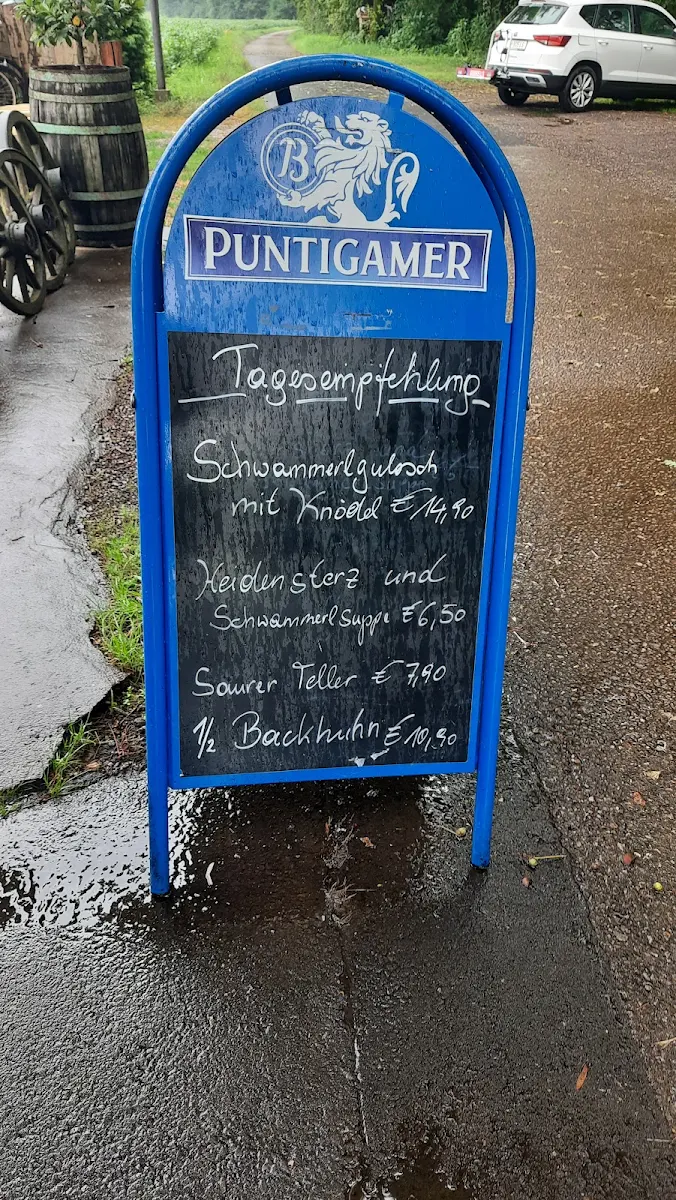 B
PUNTIGAMER
Tagesempfehlung
Schwammerlgulasch
mit Knödel € 14,90
Heidensterz und
Schwammerlsuppe € 6,50
Saurer Teller € 7,90
1/2 Backhuhn € 10,90